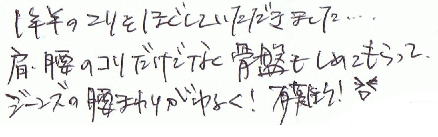 1年半のコリをほぐしていただきました…
肩・腰のコリだけでなく骨盤もしめてもらって、
ジーンズの腰まわりがゆるく！有難う！